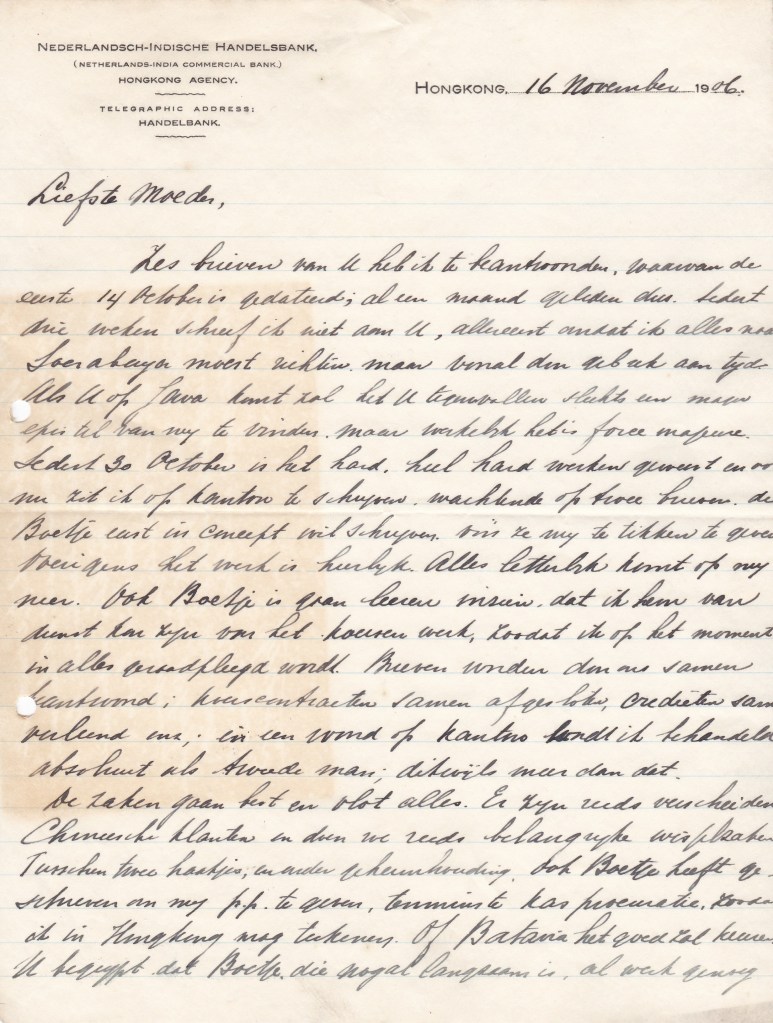 NEDERLANDSCH-INDISCHE HANDELSBANK.
(NETHERLANDS-INDIA COMMERCIAL BANK.)
HONGKONG AGENCY.
TELEGRAPHIC ADDRESS:
HANDELBANK.
HONGKONG, 16 November 1906.
Liefste Moeder,
Zes brieven van U heb ik te beantwoorden, waarvan de
eerste 14 October is gedateerd; al een maand geleden dus. Sedert
drie weken schreef ik niet aan U, allereerst omdat ik alles naa
Soerabaya moest richten, maar vooral door gebrek aan tyd.
Als U op Java komt zal het U tegenvallen slechts een mager
epistel van my te vinden, maar werkelyk het is force majeure.
Sedert 30 October is het hard, heel hard werken geweest en oo
nu zit ik op kantoor te schryven, wachtende op twee brieven, de
Boetje eerst in concept wil schryven vóór ze my te tikken te geve
Overigens het werk is heerlyk. Alles letterlyk komt op my
neer. Ook Boetje is gaan leeren inzien, dat ik hem van
dienst kan zyn voor het koersen werk, zoodat ik op het moment
in alles geraadpleegd wordt. Brieven worden door ons samen
beantwoord; koerscontracten samen afgesloten, credieten sam
verleend enz.; in een woord op kantoor wordt ik behandeld
absoluut als tweede man; dikwijls meer dan dat.
De zaken gaan best en vlot alles. Er zyn reeds verscheiden
Chineesche klanten en doen we reeds belangryke wisselzaken
Tusschen twee haakjes, en onder geheimhouding, ook Boetje heeft ge-
schreven om my p.p. te geven, tenminste kas procuratie, zooda
ik in Hongkong mag teekenen. Of Batavia het goed zal keuren
U begrypt dat Boetje, die nogal langzaam is, al werk genoeg